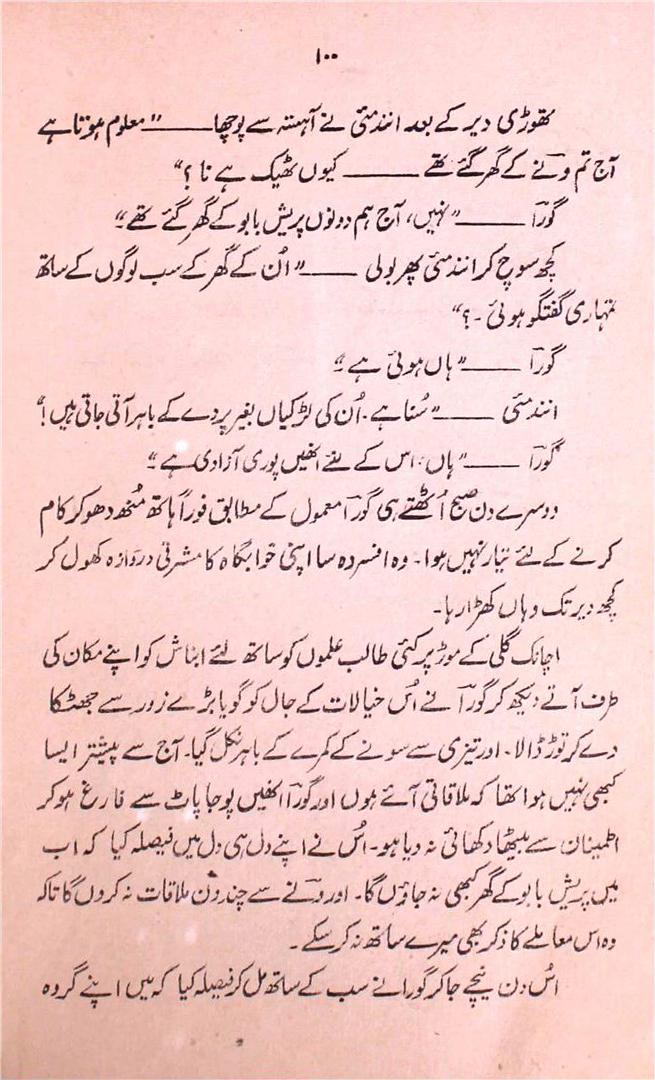 ۱۰۰
تھوڑی دیر کے بعد انندمئی نے آہستہ سے پوچھا ——— "معلوم ہوتا ہے
آج تم ونے کے گھر گئے تھے ——— کیوں ٹھیک ہے نا؟"
گورا ——— "نہیں، آج ہم دونوں پریش بابو کے گھر گئے تھے۔"
کچھ سوچ کر انندمئی پھر بولی ——— "اُن کے گھر کے سب لوگوں کے ساتھ
تمہاری گفتگو ہوئی۔؟"
گورا ——— "ہاں ہوئی ہے۔"
انندمئی ——— "سُنا ہے۔ اُن کی لڑکیاں بغیر پردے کے باہر آتی جاتی ہیں!"
گورا ——— "ہاں! اس کے لئے انھیں پوری آزادی ہے۔"
دوسرے دن صبح اُٹھتے ہی گورا معمول کے مطابق فوراً ہاتھ مُنھ دھو کر کام
کرنے کے لئے تیار نہیں ہوا۔ وہ افسردہ سا اپنی خوابگاہ کا مشرقی دروازہ کھول کر
کچھ دیر تک وہاں کھڑا رہا۔
اچانک گلی کے موڑ پر کئی طالب علموں کو ساتھ لئے ابناش کو اپنے مکان کی
طرف آتے دیکھ کر گورا نے اُس خیالات کے جال کو گویا بڑے زور سے جھٹکا
دے کر توڑ ڈالا۔ اور تیزی سے سونے کے کمرے کے باہر نکل گیا۔ آج سے پیشتر ایسا
کبھی نہیں ہوا تھا کہ ملاقاتی آئے ہوں اور گورا انھیں پوجا پاٹ سے فارغ ہو کر
اطمینان سے بیٹھا دکھائی نہ دیا ہو۔ اُس نے اپنے دل ہی دل میں فیصلہ کیا کہ اب
میں پریش بابو کے گھر کبھی نہ جاؤں گا۔ اور ونے سے چند دن ملاقات نہ کروں گا تاکہ
وہ اس معاملے کا ذکر بھی میرے ساتھ نہ کر سکے۔
اُس دن نیچے جا کر گورا نے سب کے ساتھ مل کر فیصلہ کیا کہ میں اپنے گروہ